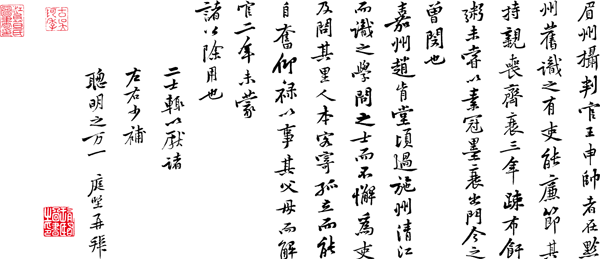 眉州攝判官王申帥者在黔
州舊識之有吏能廉節其
持親喪齊衰三年疎布飦
粥未嘗以素冠墨衰出門今之
曾閔也
嘉州趙肯堂頃過施州清江
而識之學問之士而不懈為吏
及問其里人本客寄孤立而能
自奮仰祿以事其父母而解
官二年未蒙
諸公除用也
二士輒以厭諸
左右少補
聰明之万一 庭堅再拜